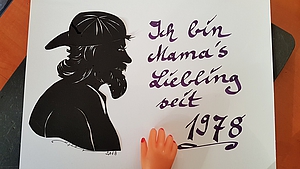 Ich bin
Mama's
Liebling
seit
1978